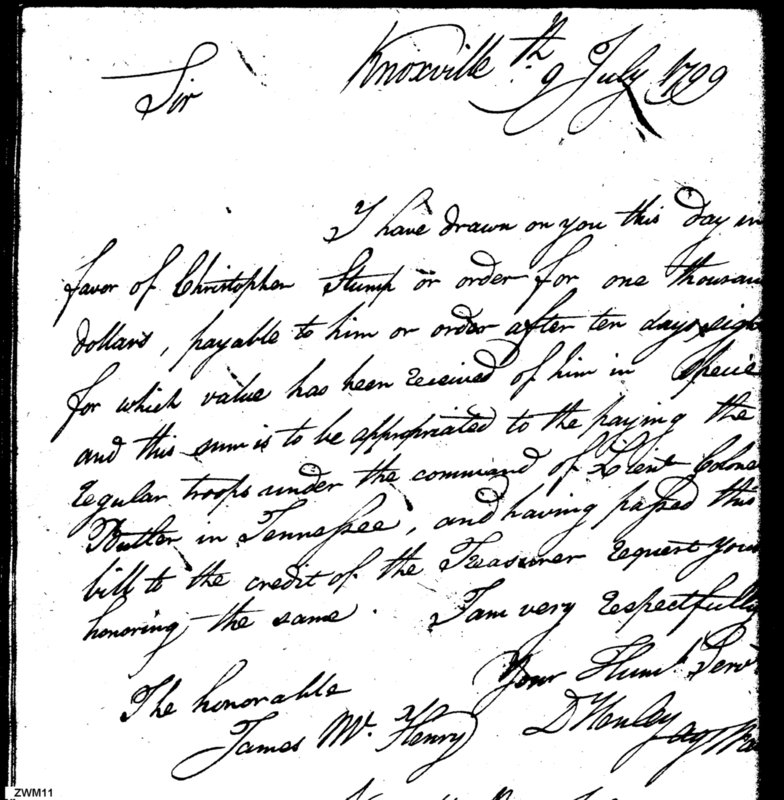 Knoxville th 9 July 1799
Sir
I have drawn on you this day in
favor of Christopher Stump or order for one thousan
dollars, payable to him or order after ten days sigh
for which value has been received of him in Specie
and this sum is to be appropriated to the paying the
regular troops under the command of Lieut Colone
Butler in Tennessee, and having passed this
bill to the credit of the Treasurer request your
honoring the same. I am very respectfully
Your Humb Serv
The honorable
James McHenry
D Henley
ag
ZWM11